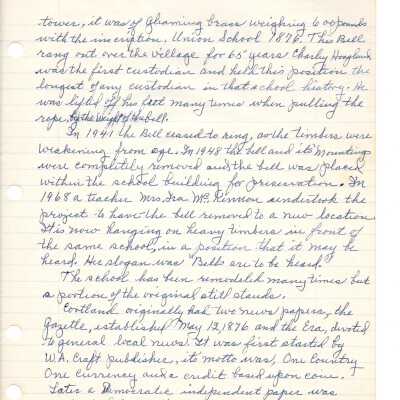 tower, it was of gleaming brass weighing 600 pounds
with the inscription. Union School 1876. This Bell
rang out over the village for 65 years Charley Hoagland
was the first custodian and held this position the
longest of any custodian in that school history. He
was lifted off his feet many times when pulling the
rope, by the weight of the bell.
In 1941 the Bell ceased to ring, as the timbers were
weakening from age. In 1948 the bell and its Mountings
were completely removed and the bell was placed
within the school building for preservation. In
1968 a teacher Mrs. Ira McKinnon undertook the
project to have the bell removed to a new location
It is now hanging on heavy timbers in front of
the same school, in a position that it may be
heard. Her slogan was "Bells are to be heard."
The school has been remodeled many times but
a portion of the original still stands.
Cortland originally had two news papers, the
Gazette, established May 12, 1876 and the Era, devoted
to general local news. It was first started by
W.A. Craft publisher, its motto was, One Country
One currency and a credit based upon
Later a Democratic independent paper was